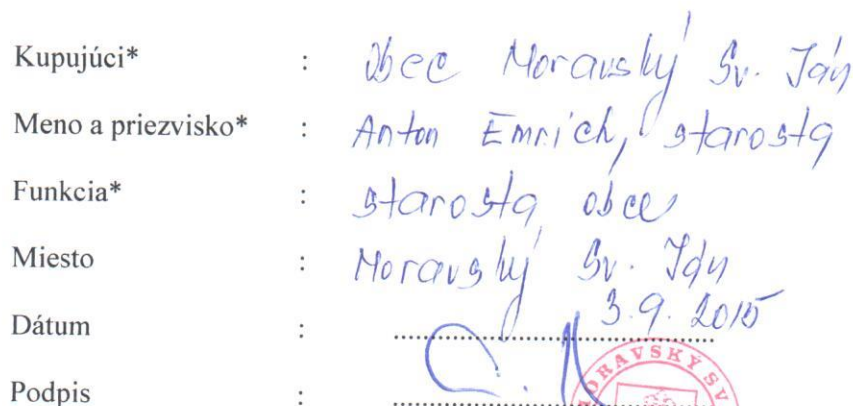 Kupujúci* : Obec Moravský Sv. Ján
Meno a priezvisko* : Anton Emrich, starosta
Funkcia* : starosta obce
Miesto : Moravský Sv. Ján
Dátum : 3.9.2015
Podpis :
MORAVSKÝ SV